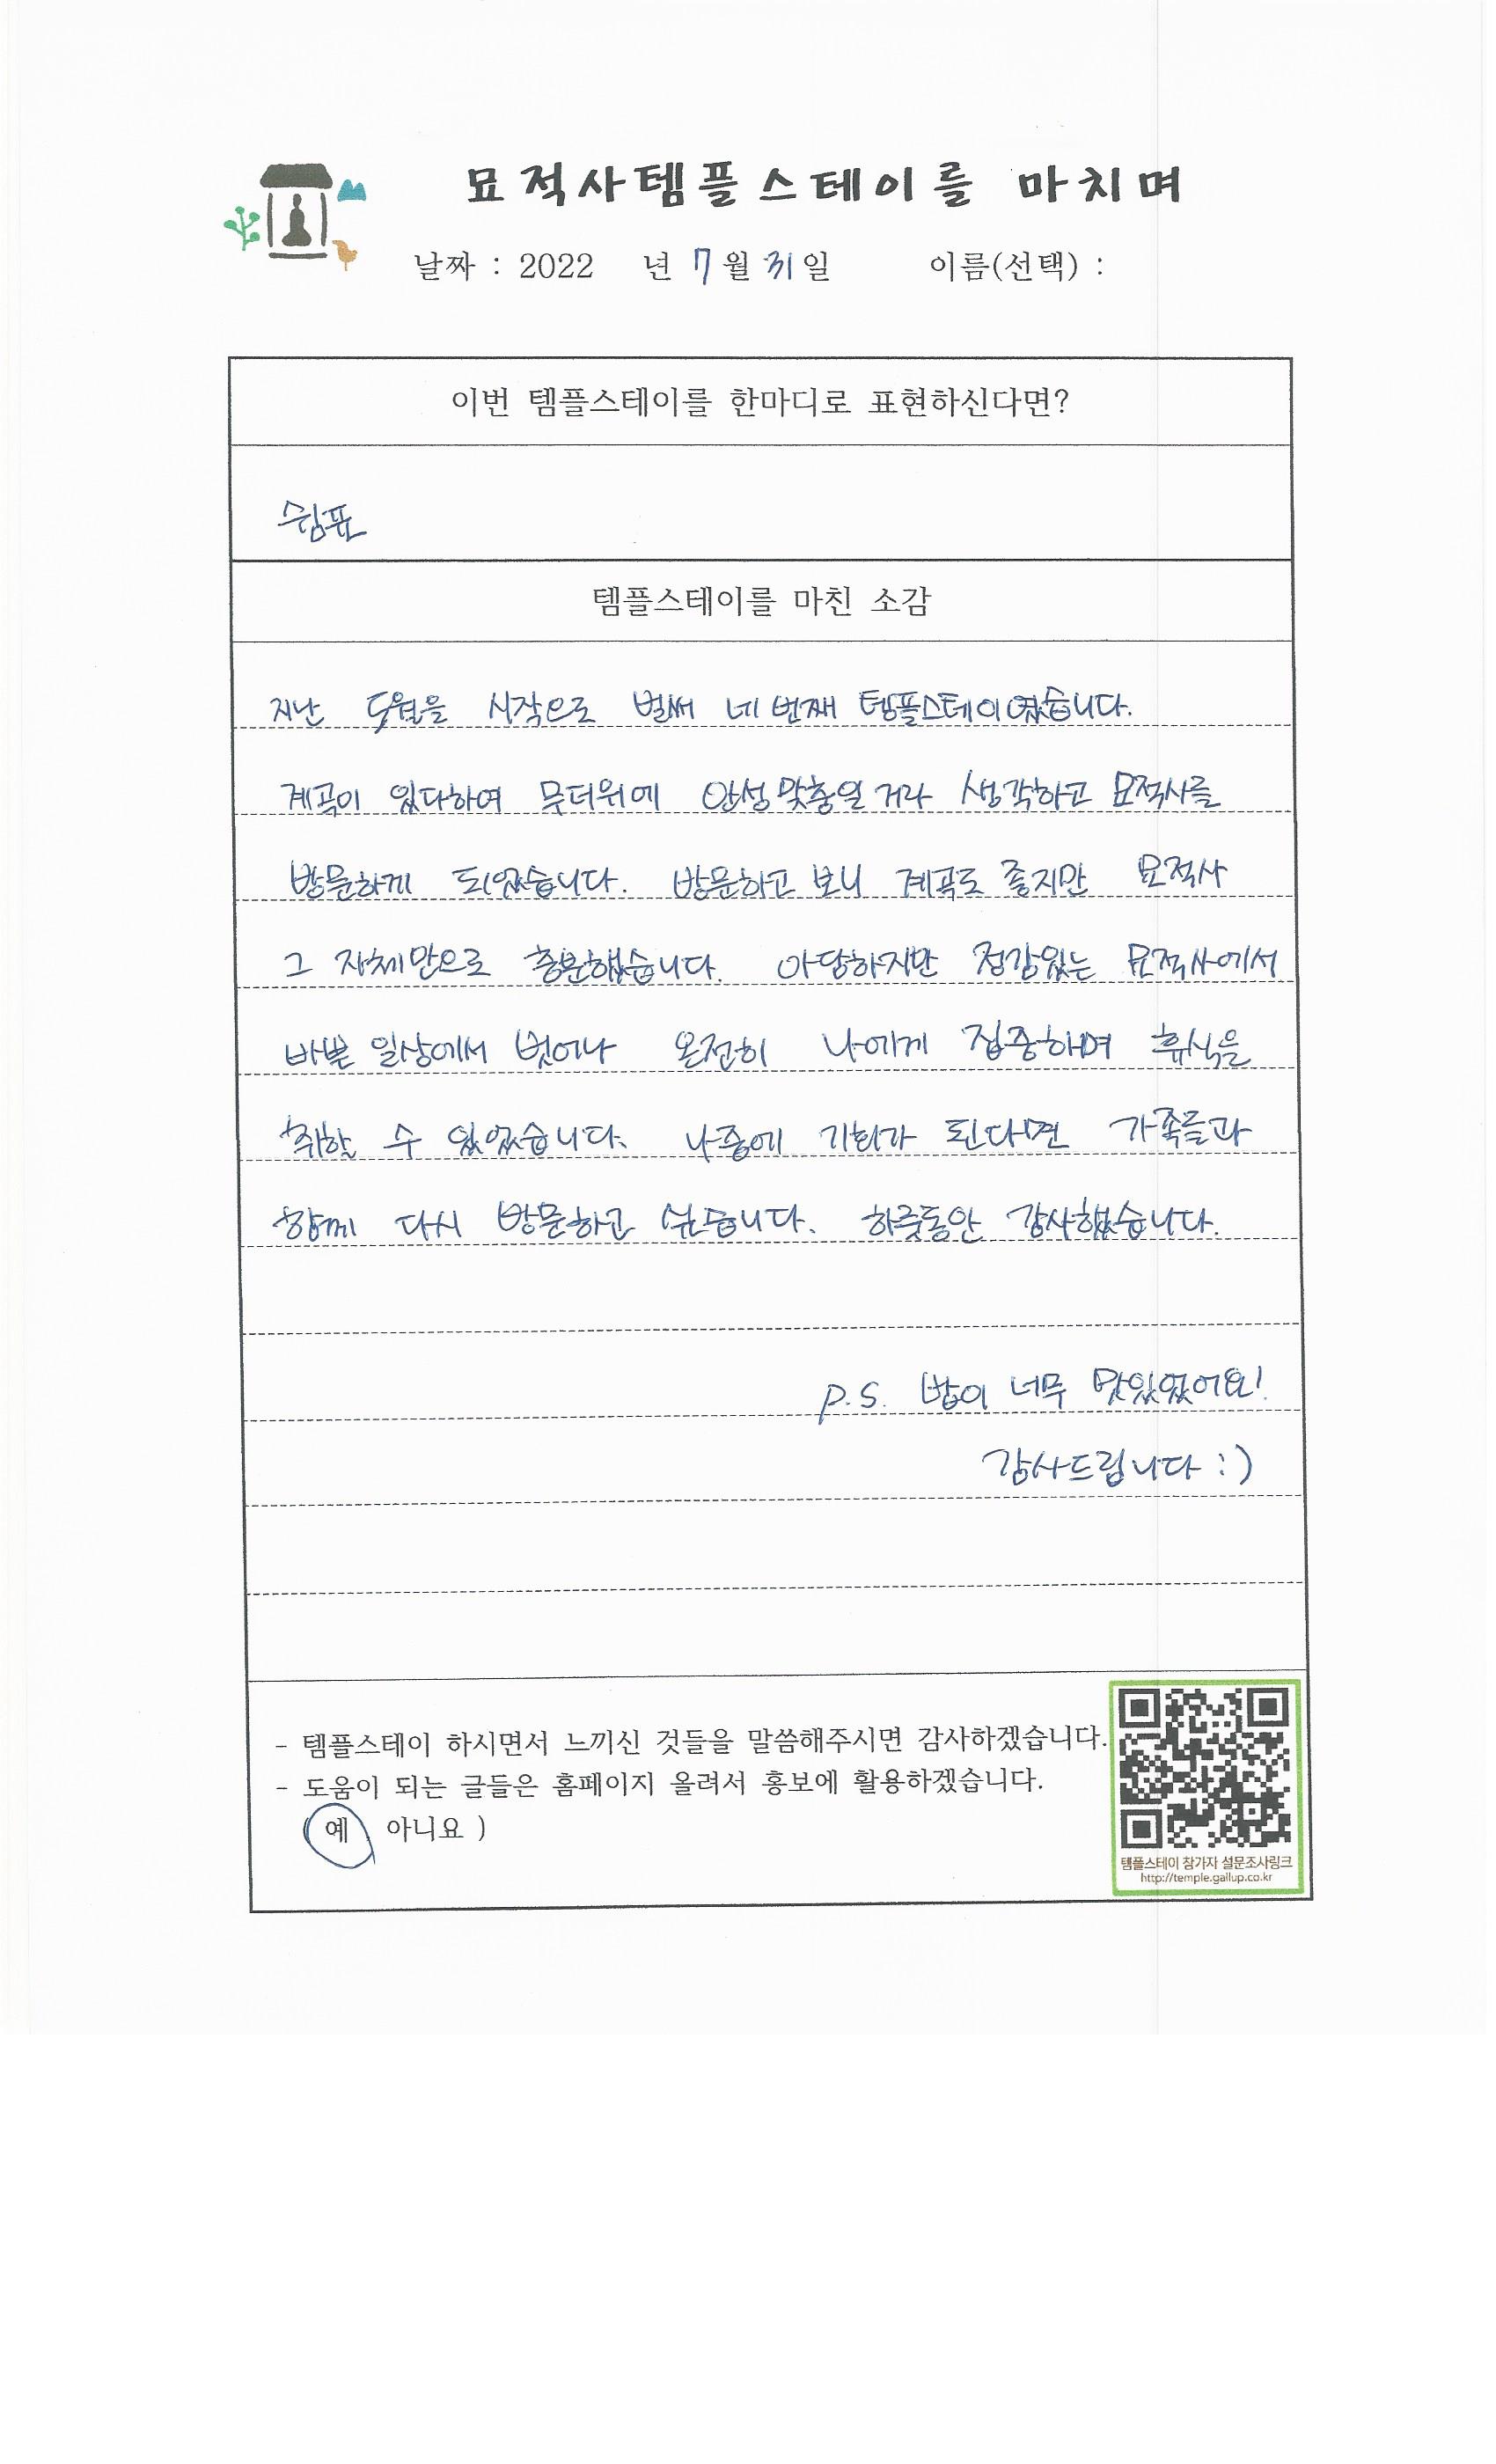 묘적사템플스테이를 마치며
날짜 : 2022 년 7월 31일 이름(선택) :
이번 템플스테이를 한마디로 표현하신다면?
쉼표
템플스테이를 마친 소감
지난 5월을 시작으로 벌써 네 번째 템플스테이였습니다.
계곡이 있다하여 무더위에 안성맞춤일 거라 생각하고 묘적사를
방문하게 되었습니다. 방문하고 보니 계곡도 좋지만 묘적사
그 자체만으로 충분했습니다. 아담하지만 정감있는 묘적사에서
바쁜 일상에서 벗어나 온전히 나에게 집중하며 휴식을
취할 수 있었습니다. 나중에 기회가 된다면 가족들과
함께 다시 방문하고 싶습니다. 하룻동안 감사했습니다.
P.S. 밥이 너무 맛있었어요!
감사드립니다 :)
- 템플스테이 하시면서 느끼신 것들을 말씀해주시면 감사하겠습니다.
- 도움이 되는 글들은 홈페이지 올려서 홍보에 활용하겠습니다.
( 예 , 아니요 )
템플스테이 참가자 설문조사링크
http://temple.gallup.co.kr